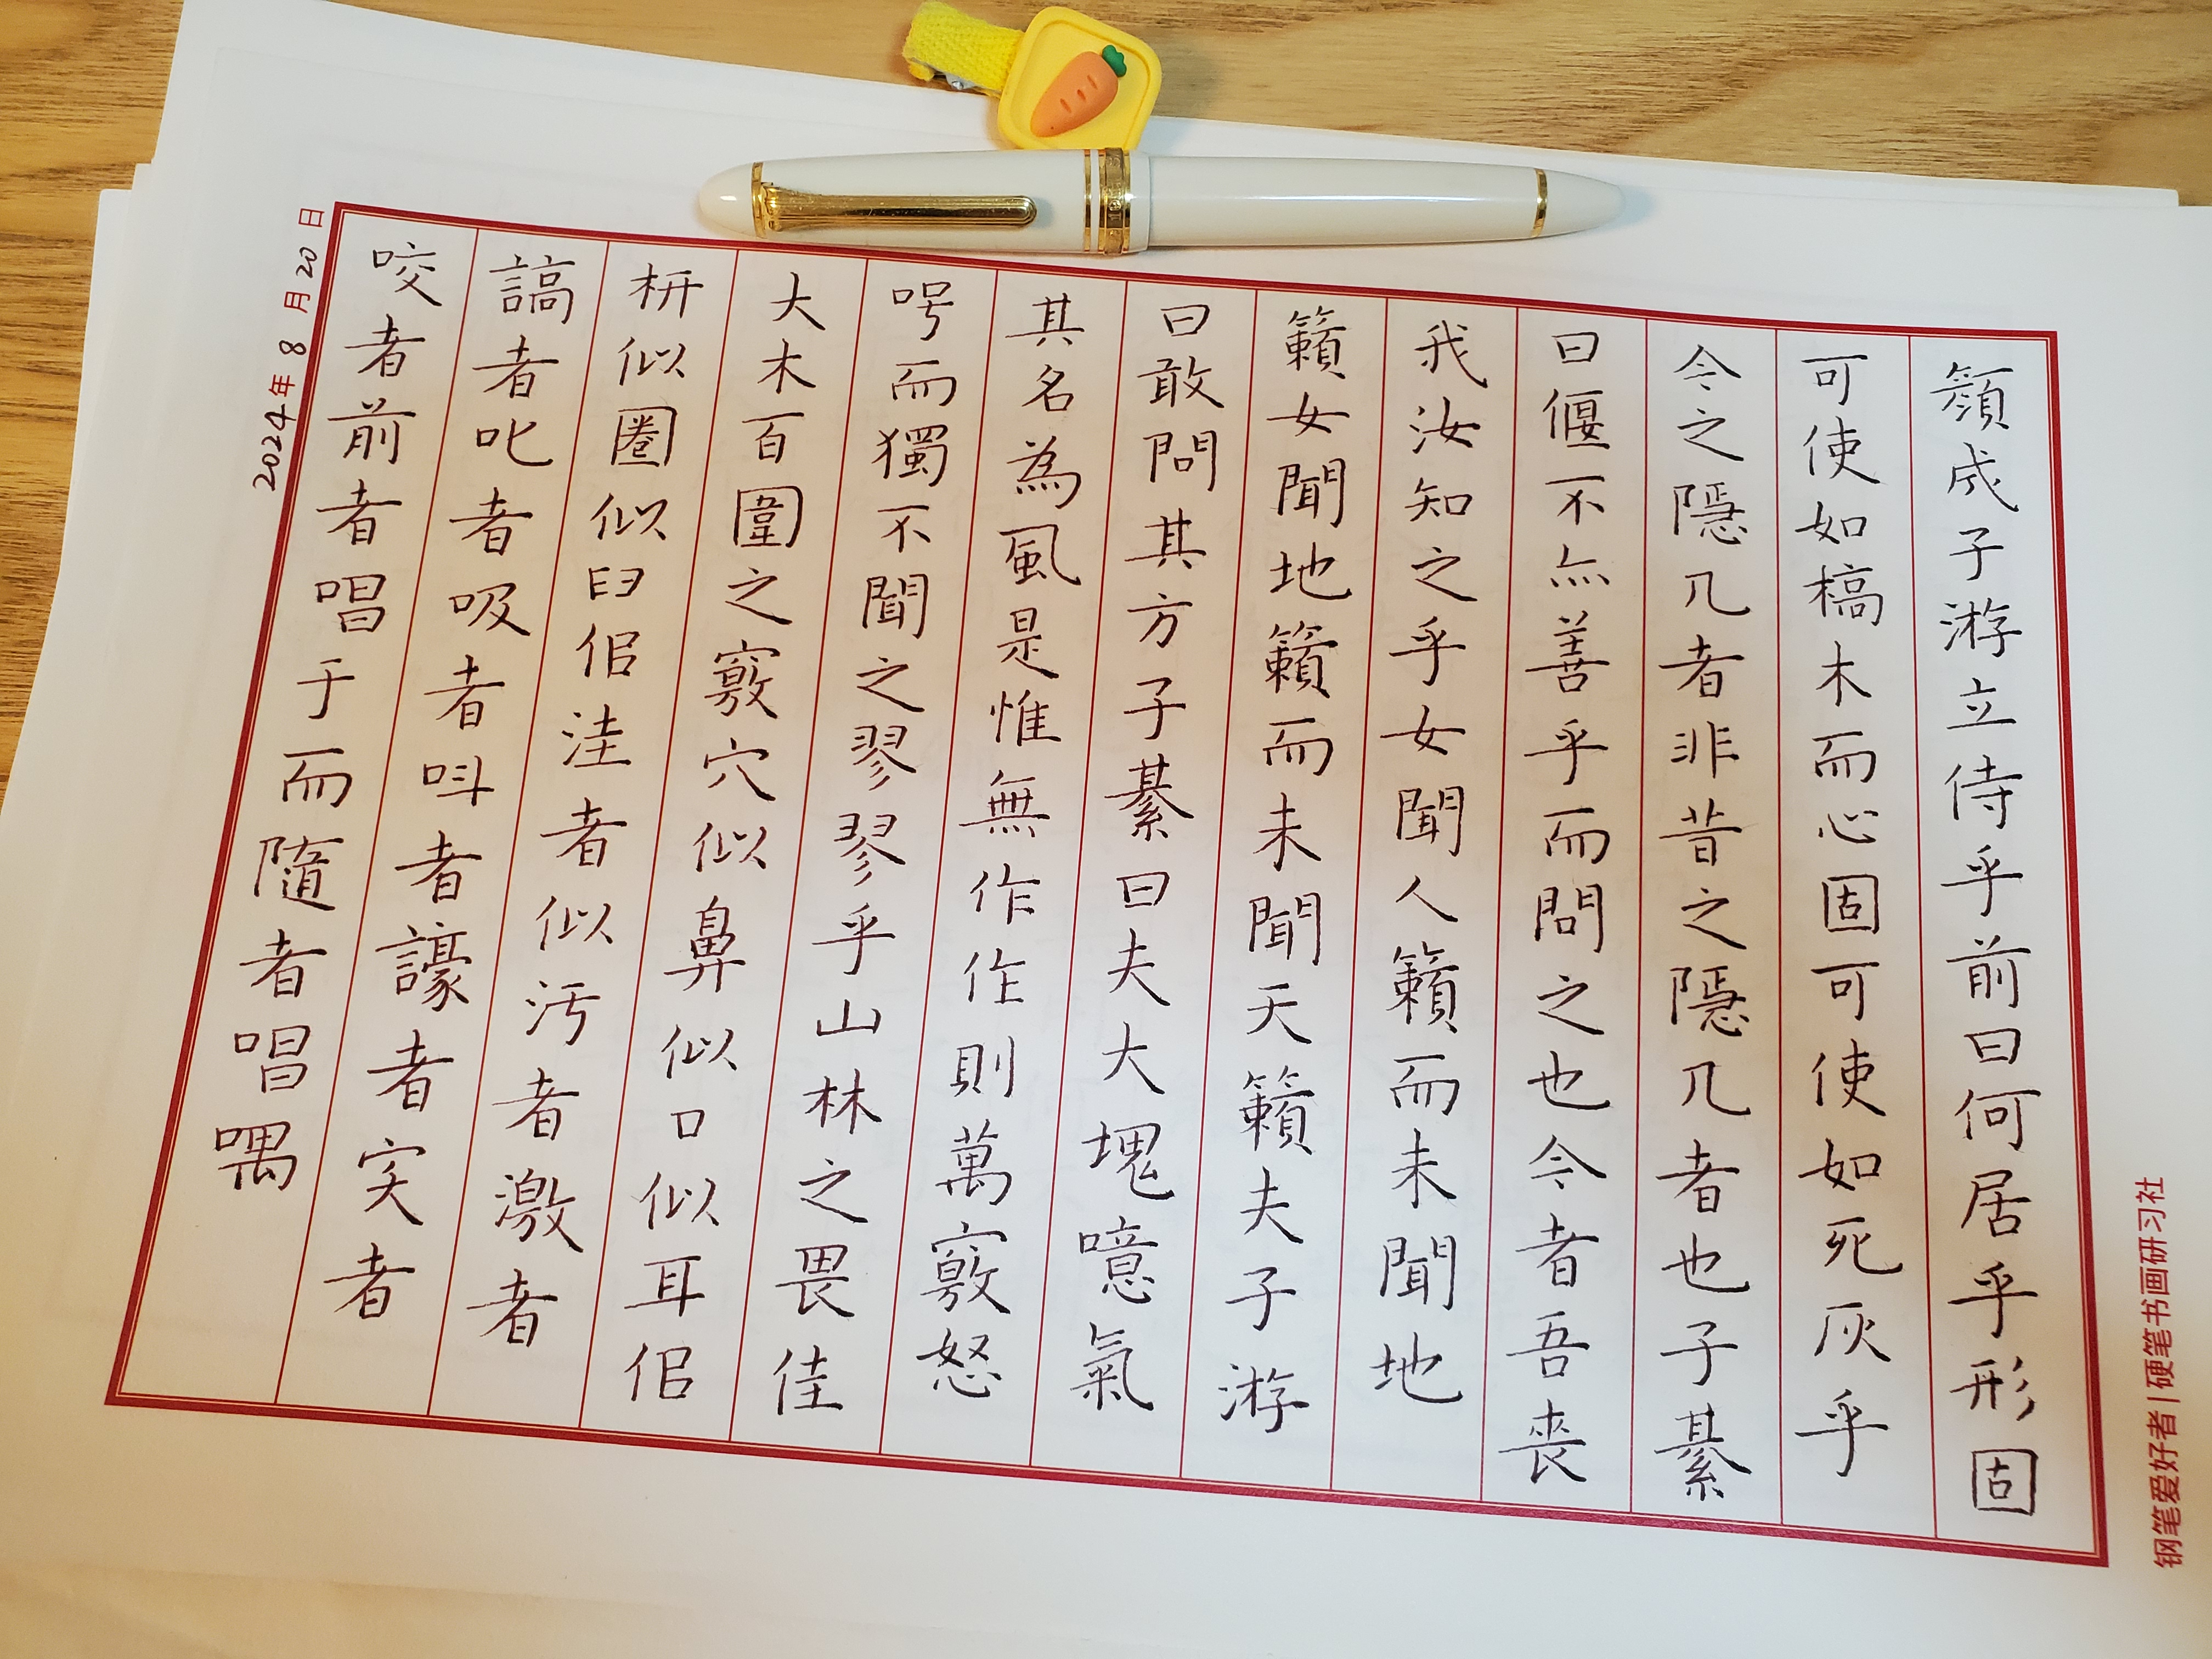 顏成子游立侍乎前曰何居乎形固
可使如槁木而心固可使如死灰乎
今之隱几者非昔之隱几者也子綦
曰偃不亦善乎而問之也今者吾喪
我汝知之乎女聞人籟而未聞地
籟女聞地籟而未聞天籟夫子游
曰敢問其方子綦曰夫大塊噫氣
其名為風是惟無作作則萬竅怒
呺而獨不聞之翏翏乎山林之畏佳
大木百圍之竅穴似鼻似口似耳佀
枅似圈似臼佀洼者似污者激者
謞者叱者吸者叫者譹者宎者
咬者前者唱于而隨者唱喁
2024年8月20日
钢笔爱好者|硬笔书画研习社